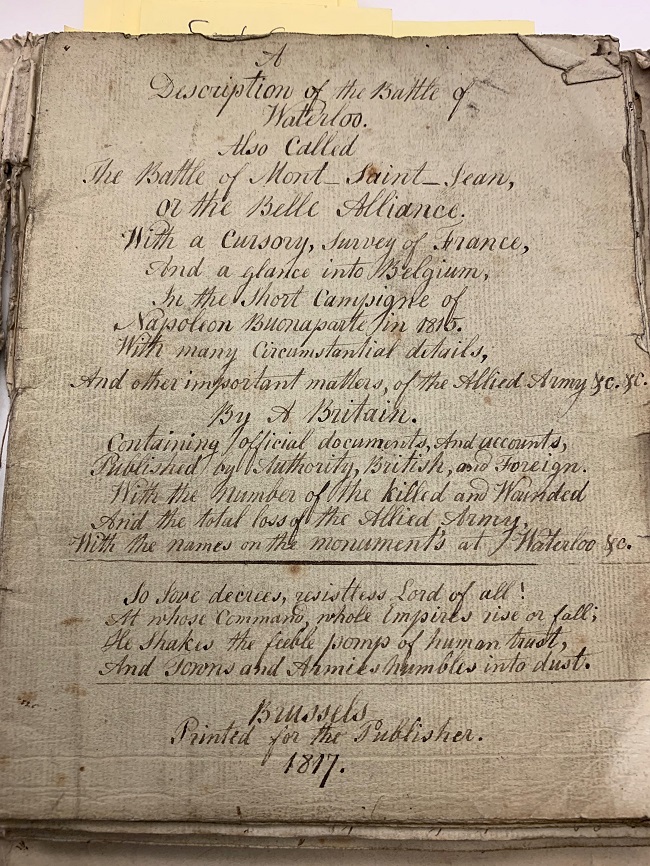 A
Description of the Battle of
Waterloo.
Also Called
The Battle of Mont-Saint-Jean,
or the Belle Alliance.
With a Cursory, Survey of France,
And a glance into Belgium,
In the Short Campigne of
Napoleon Buonaparte, in 1815.
With many Circumstantial details,
And other important matters, of the Allied Army &c. &c.
By A Britain.
Containing official documents, And accounts,
Published by Authority, British, and Foreign.
With the number of the killed and Wounded
And the total loss of the Allied Army,
With the names on the monuments at Waterloo &c.
So Jove decrees, resistless Lord of all!
At whose Command, whole Empires rise or fall;
He Shakes the feeble pomps of human trust,
And Towns and Armies humbles into dust.
Brussels
Printed for the Publisher.
1817.